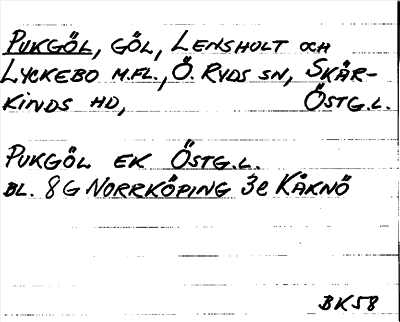 PUKGÖL, GÖL, LENSHULT OCH
LYCKEBO M.FL., Ö. RYDS SN, SKÄR-
KINDS HD, ÖSTG.L.
PUKGÖL EK ÖSTG.L.
BL. 8G NORRKÖPING 3e KÅKNÖ
BK58